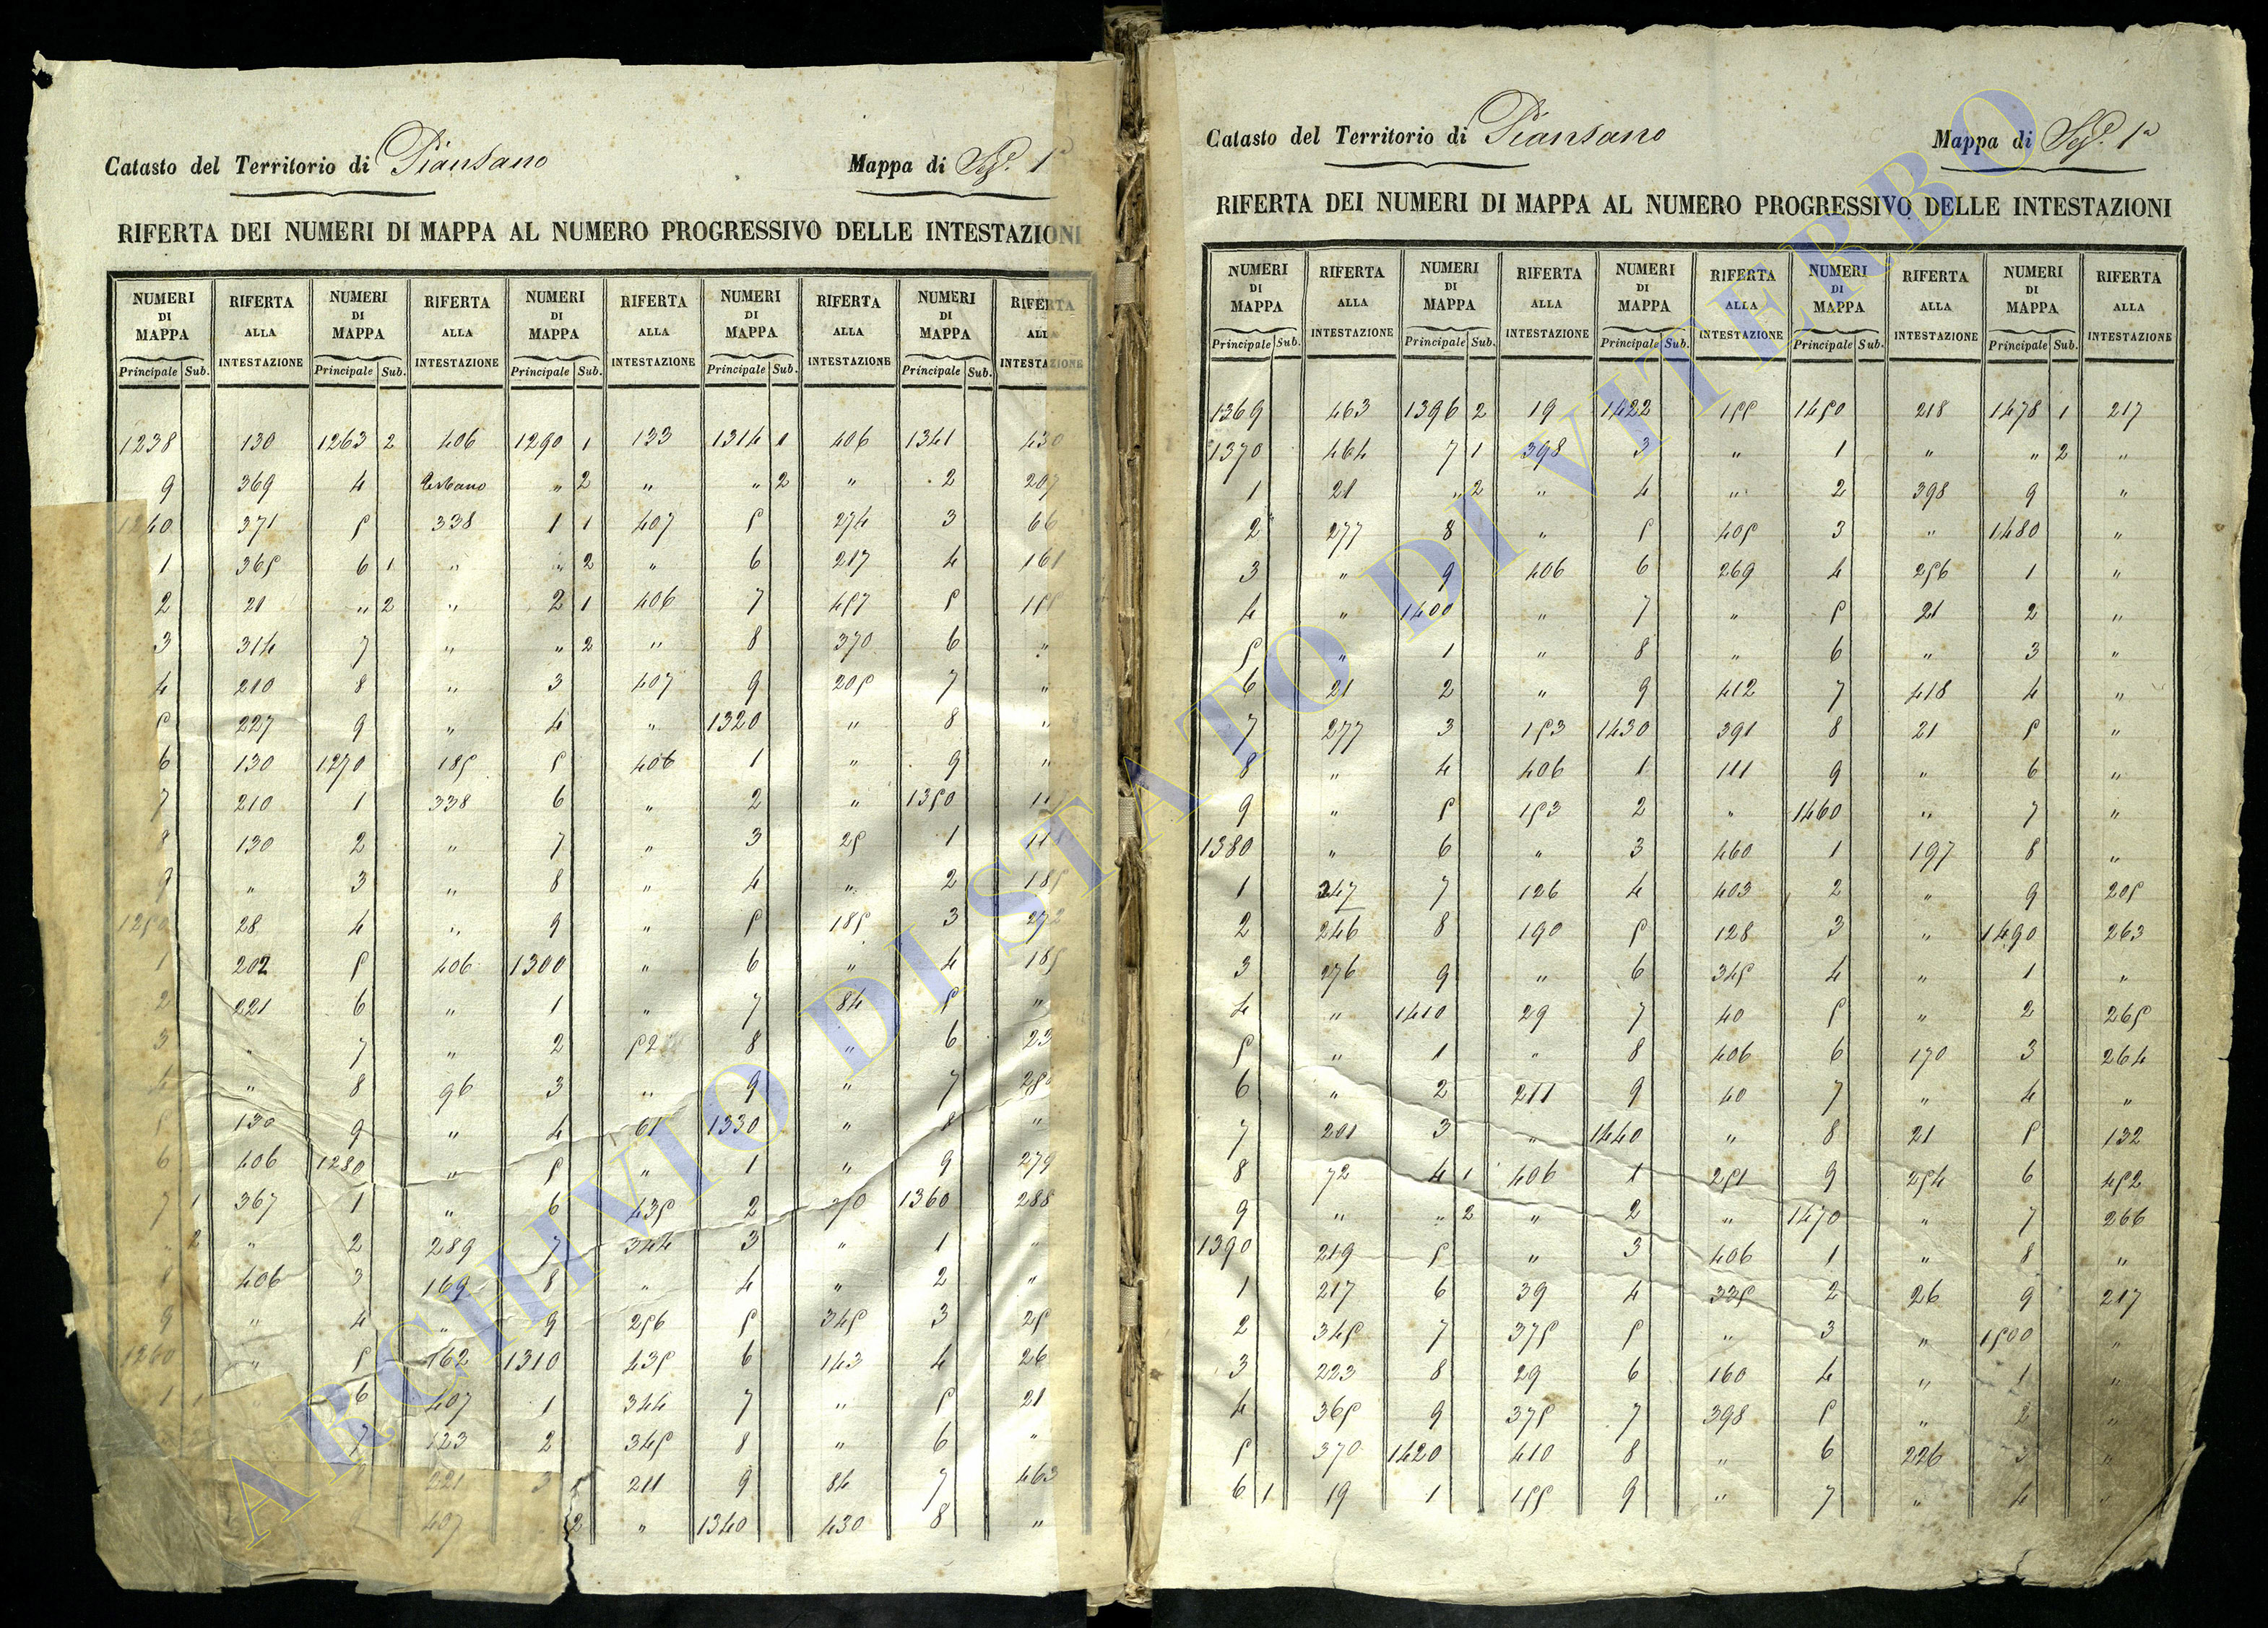 Catasto del Territorio di Piansano Mappa di Sez. 1ª
RIFERTA DEI NUMERI DI MAPPA AL NUMERO PROGRESSIVO DELLE INTESTAZIONI
NUMERI DI MAPPA RIFERTA ALLA INTESTAZIONE NUMERI DI MAPPA RIFERTA ALLA INTESTAZIONE NUMERI DI MAPPA RIFERTA ALLA INTESTAZIONE NUMERI DI MAPPA RIFERTA ALLA INTESTAZIONE NUMERI DI MAPPA RIFERTA ALLA INTESTAZIONE
Principale Sub. Principale Sub. Principale Sub. Principale Sub. Principale Sub.
1238 130 1263 2 406 1290 1 133 1314 1 406 1341 430
9 369 4 Urbano „ 2 „ „ 2 „ 2 207
1240 371 5 338 1 1 407 5 274 3 66
1 365 6 1 „ „ 2 „ 6 217 4 161
2 21 „ 2 „ 2 1 406 7 457 5 155
3 314 7 „ „ 2 „ 8 370 6 „
4 210 8 „ 3 407 9 205 7 „
5 227 9 „ 4 „ 1320 „ 8 „
6 130 1270 185 5 406 1 „ 9 „
7 210 1 338 6 „ 2 „ 1350
8 130 2 „ 7 „ 3 25 1
9 „ 3 „ 8 „ 4 „ 2 185
1250 28 4 „ 9 „ 5 185 3 272
1 202 5 406 1300 „ 6 „ 4 185
2 221 6 „ 1 „ 7 84 5 „
3 „ 7 „ 2 52 8 „ 6 23
4 „ 8 96 3 „ 9 „ 7 250
5 130 9 „ 4 61 1330 „ 8 „
6 406 1280 „ 5 „ 1 „ 9 279
7 1 367 1 „ 6 435 2 70 1360 288
„ 2 „ 2 289 7 344 3 „ 1 „
8 406 3 169 8 „ 4 „ 2 „
9 „ 4 „ 9 256 5 345 3 25
1260 „ 5 162 1310 435 6 143 4 26
1 1 6 407 1 344 7 „ 5 21
7 123 2 345 8 „ 6 „
221 3 211 9 84 7 463
9 407 2 „ 1340 430 8 „
Catasto del Territorio di Piansano Mappa di Sez. 1ª
RIFERTA DEI NUMERI DI MAPPA AL NUMERO PROGRESSIVO DELLE INTESTAZIONI
NUMERI DI MAPPA RIFERTA ALLA INTESTAZIONE NUMERI DI MAPPA RIFERTA ALLA INTESTAZIONE NUMERI DI MAPPA RIFERTA ALLA INTESTAZIONE NUMERI DI MAPPA RIFERTA ALLA INTESTAZIONE NUMERI DI MAPPA RIFERTA ALLA INTESTAZIONE
Principale Sub. Principale Sub. Principale Sub. Principale Sub. Principale Sub.
1369 463 1396 2 19 1422 155 1450 218 1478 1 217
1370 464 7 1 398 3 „ 1 „ „ 2 „
1 21 „ 2 „ 4 „ 2 398 9 „
2 277 8 „ 5 405 3 „ 1480 „
3 „ 9 406 6 269 4 256 1 „
4 „ 1400 „ 7 „ 5 21 2 „
5 „ 1 „ 8 „ 6 „ 3 „
6 21 2 „ 9 412 7 418 4 „
7 277 3 153 1430 391 8 21 5 „
8 „ 4 406 1 111 9 „ 6 „
9 „ 5 153 2 „ 1460 „ 7 „
1380 „ 6 „ 3 460 1 197 8 „
1 247 7 126 4 403 2 „ 9 205
2 246 8 190 5 128 3 „ 1490 263
3 276 9 „ 6 345 4 „ 1 „
4 „ 1410 29 7 40 5 „ 2 265
5 „ 1 „ 8 406 6 170 3 264
6 „ 2 211 9 40 7 „ 4 „
7 201 3 „ 1440 „ 8 21 5 132
8 72 4 1 406 1 251 9 254 6 452
9 „ „ 2 „ 2 „ 1470 „ 7 266
1390 219 5 „ 3 406 1 „ 8 „
1 217 6 39 4 335 2 26 9 217
2 345 7 375 5 „ 3 „ 1500 „
3 223 8 29 6 160 4 „ 1 „
4 365 9 375 7 398 5 „ 2 „
5 370 1420 410 8 „ 6 226 3 „
6 1 19 1 155 9 „ 7 „ 4 „
ARCHIVIO DI STATO DI VITERBO